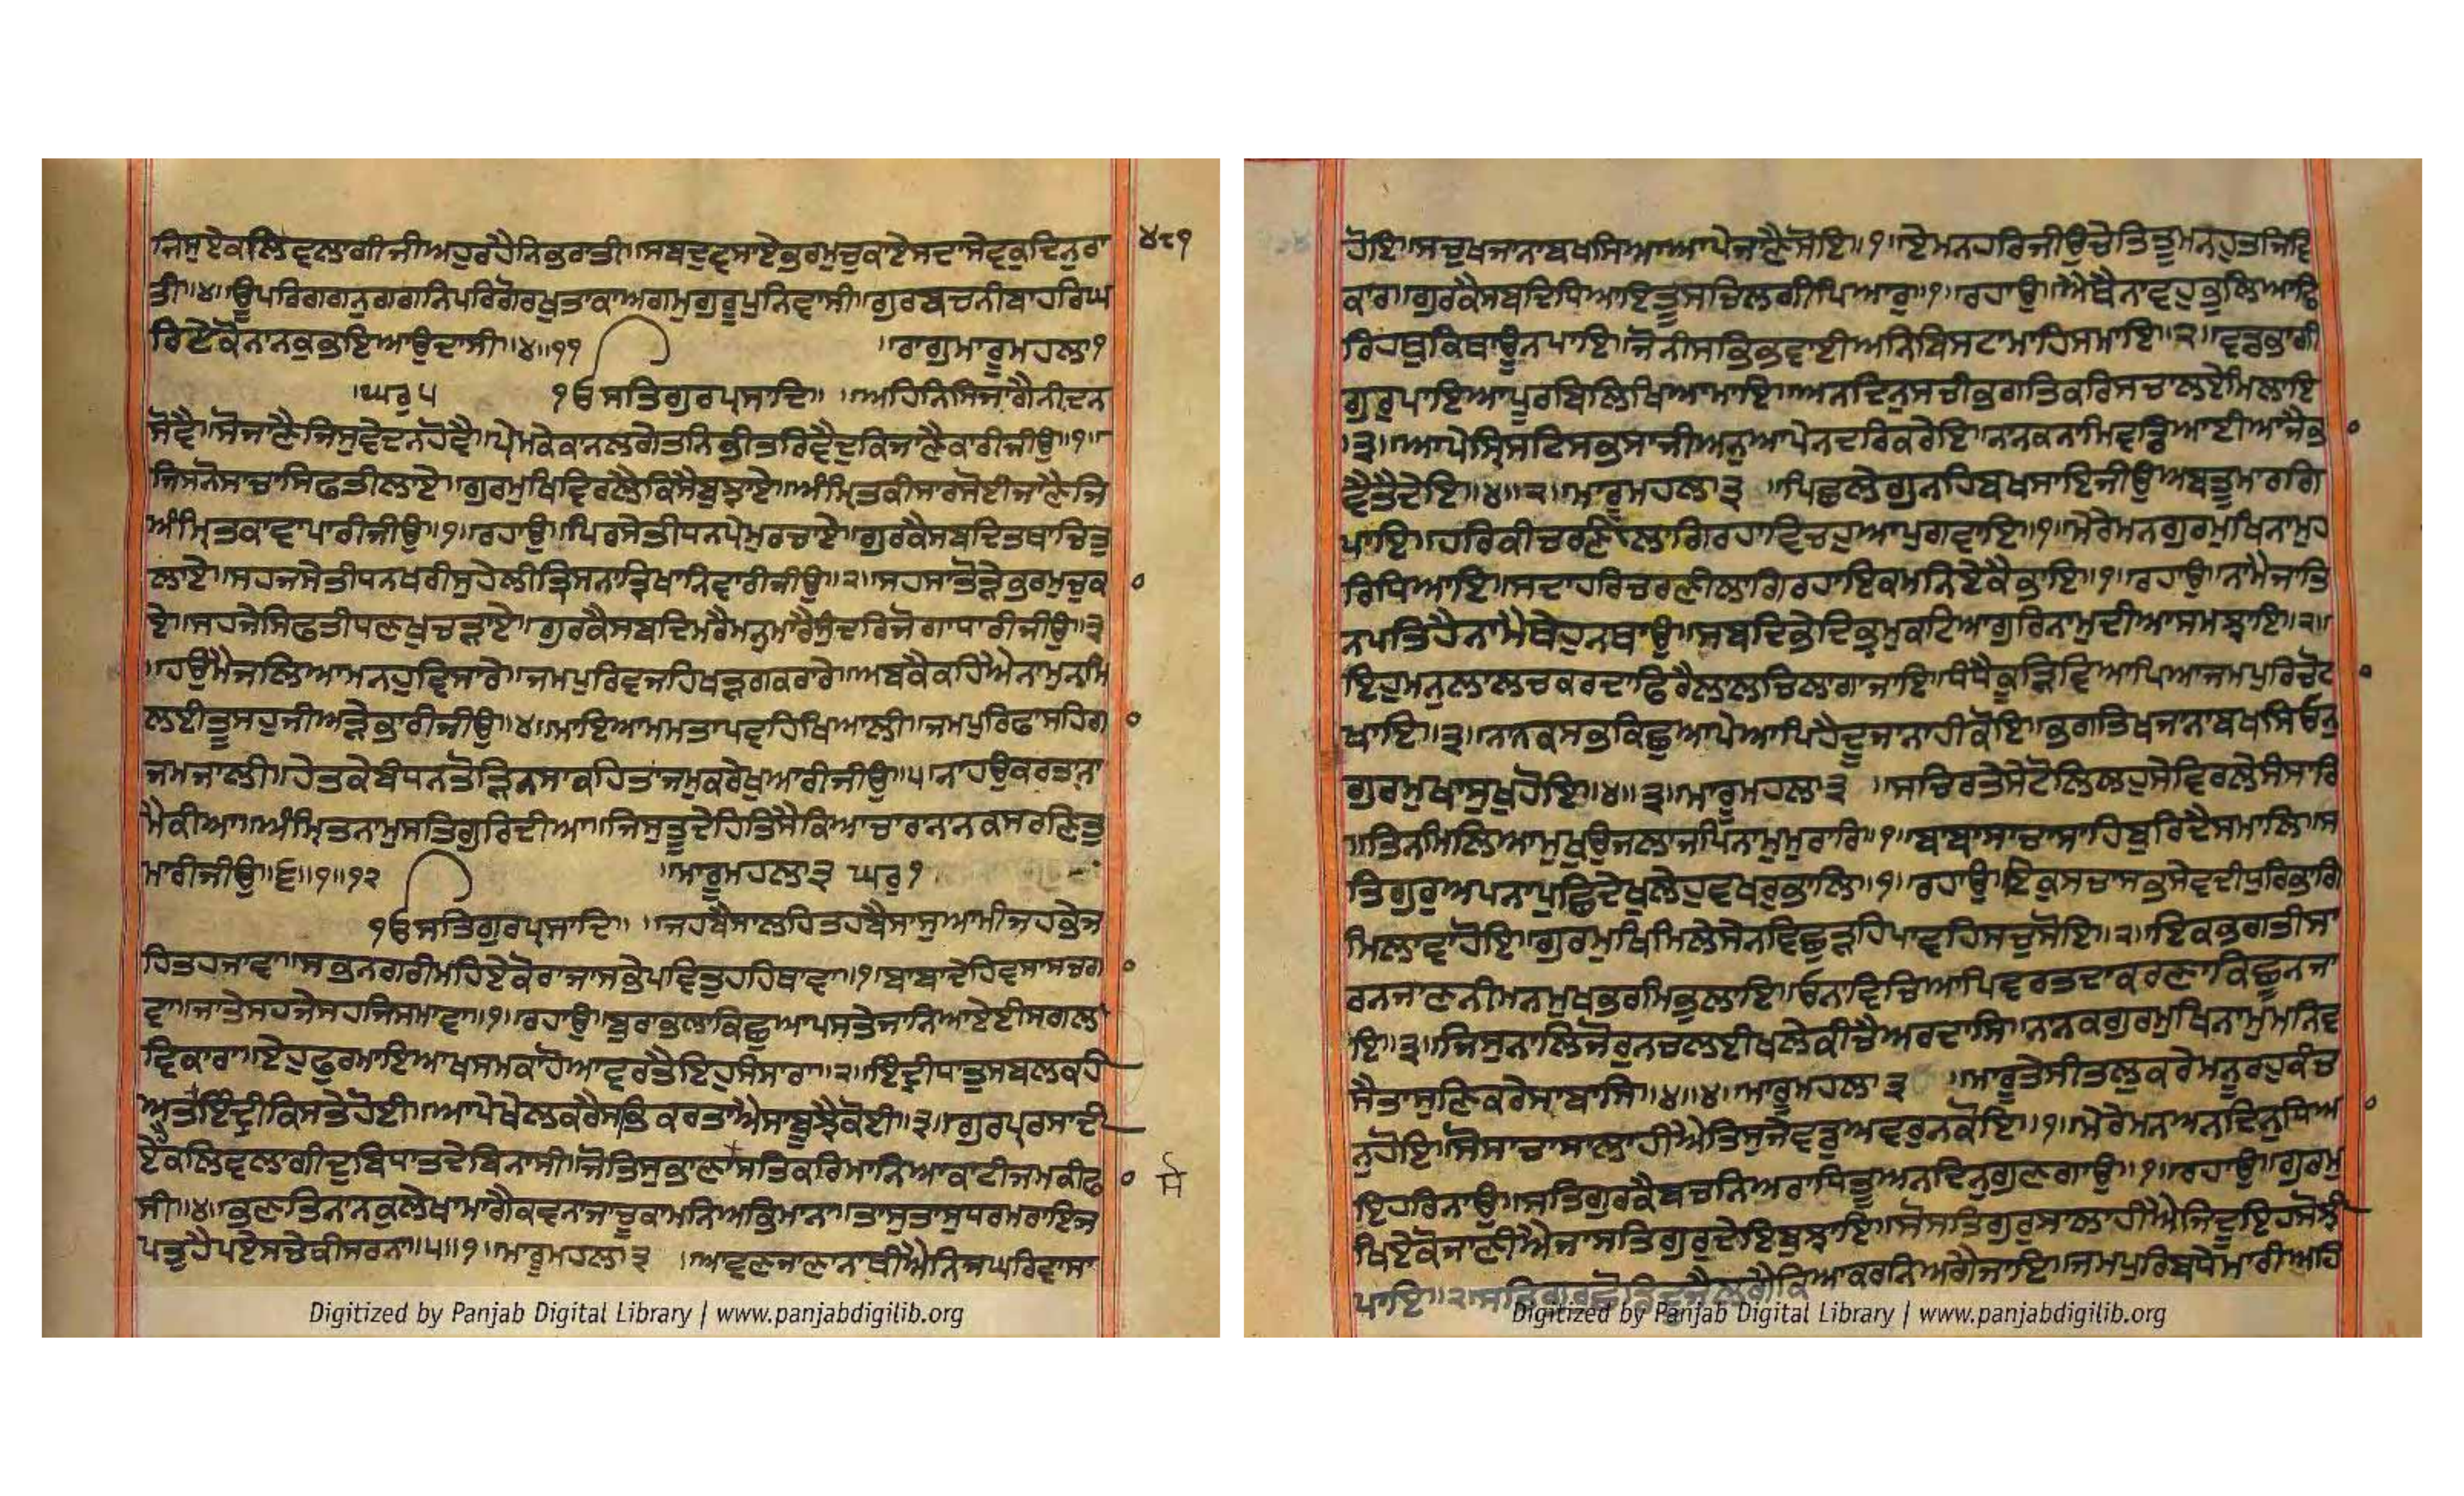 ਜਿਸੁਏਕਲਿਵਲਾਗੀਜੀਅਹੁਰਹੈਨਿਭਰਾਤੀ॥ਸਬਦੁਵਸਾਏਭਰਮੁਚੁਕਾਏਸਦਾਸੇਵਕੁਦਿਨੁਰਾ ੪੮੧
ਤੀ॥੪॥ਊਪਰਿਗਗਨੁਗਗਨਿਪਰਿਗੋਰਖੁਤਾਕਾਅਗਮੁਗੁਰੂਪੁਨਿਵਾਸੀ॥ਗੁਰਬਚਨੀਬਾਹਰਿਘ
ਰਿਏਕੋਨਾਨਕੁਭਇਆਉਦਾਸੀ॥੪॥੧੧
॥ਰਾਗੁਮਾਰੂਮਹਲਾ੧
॥ਘਰੁ੫ ੴਸਤਿਗੁਰਪ੍ਰਸਾਦਿ॥ ॥ਅਹਿਨਿਸਿਜਾਗੈਨੀਦਨ
ਸੋਵੈ॥ਸੋਜਾਣੈਜਿਸੁਵੇਦਨਹੋਵੈ॥ਪ੍ਰੇਮਕੇਕਾਨਲਗੇਤਨਿਭੀਤਰਿਵੈਦੁਕਿਜਾਣੈਕਾਰੀਜੀਉ॥੧॥
ਜਿਸਨੋਸਾਚਾਸਿਫਤੀਲਾਏ॥ਗੁਰਮੁਖਿਵਿਰਲੈਕਿਸੈਬੁਝਾਏ॥ਅੰਮ੍ਰਿਤਕੀਸਾਰਸੋਈਜਾਣੈਜਿ
ਅੰਮ੍ਰਿਤਕਾਵਾਪਾਰੀਜੀਉ॥੧॥ਰਹਾਉ॥ਪਿਰਸੇਤੀਧਨਪ੍ਰੇਮੁਰਚਾਏ॥ਗੁਰਕੈਸਬਦਿਤਥਾਚਿਤੁ
ਲਾਏ॥ਸਹਜਸੇਤੀਧਨਖਰੀਸੁਹੇਲੀਤ੍ਰਿਸਨਾਤ੍ਰਿਖਾਨਿਵਾਰੀਜੀਉ॥੨॥ਸਹਸਾਤੋੜੇਭਰਮੁਚੁਕਾ
ਏ॥ਸਹਜੇਸਿਫਤੀਧਣਖੁਚੜਾਏ॥ਗੁਰਕੈਸਬਦਿਮਰੈਮਨੁਮਾਰੈਸੁੰਦਰਿਜੋਗਾਧਾਰੀਜੀਉ॥੩
॥ਹਉਮੈਜਲਿਆਮਨਹੁਵਿਸਾਰੇ॥ਜਮਪੁਰਿਵਜਹਿਖੜਗਕਰਾਰੇ॥ਅਬਕੈਕਹਿਐਨਾਮੁਨਮਿ
ਲਈਤੂਸਹੁਜੀਅੜੇਭਾਰੀਜੀਉ॥੪॥ਮਾਇਆਮਮਤਾਪਵਹਿਖਿਆਲੀ॥ਜਮਪੁਰਿਫਾਸਹਿਗਾ
ਜਮਜਾਲੀ॥ਹੇਤਕੇਬੰਧਨਤੋੜਿਨਸਾਕਹਿਤਾਜਮੁਕਰੇਖੁਆਰੀਜੀਉ॥੫॥ਨਾਹਉਕਰਤਾਨਾ
ਮੈਕੀਆ॥ਅੰਮ੍ਰਿਤਨਾਮੁਸਤਿਗੁਰਿਦੀਆ॥ਜਿਸੁਤੂਦੇਹਿਤਿਸੈਕਿਆਚਾਰਾਨਾਨਕਸਰਣਿਤੁ
ਮਾਰੀਜੀਉ॥੬॥੧॥੧੨ ॥ਮਾਰੂਮਹਲਾ੩ ਘਰੁ੧
ੴਸਤਿਗੁਰਪ੍ਰਸਾਦਿ॥ ॥ਜਹਬੈਸਾਲਹਿਤਹਬੈਸਾਸੁਆਮੀਜਹਭੇਜ
ਹਿਤਹਜਾਵਾ॥ਸਭਨਗਰੀਮਹਿਏਕੋਰਾਜਾਸਭੇਪਵਿਤੁਹਹਿਥਾਵਾ॥੧॥ਬਾਬਾਦੇਹਿਵਸਾਸਚਗਾ
ਵਾ॥ਜਾਤੇਸਹਜੇਸਹਜਿਸਮਾਵਾ॥੧॥ਰਹਾਉ॥ਬੁਰਾਭਲਾਕਿਛੁਆਪਸਤੇਜਾਨਿਆਏਈਸਗਲ
ਵਿਕਾਰਾ॥ਏਹੁਫੁਰਮਾਇਆਖਸਮਕਾਹੋਆਵਰਤੈਇਹੁਸੰਸਾਰਾ॥੨॥ਇੰਦ੍ਰੀਧਾਤੁਸਬਲਕਹੀ
ਅਤਇੰਦ੍ਰੀਕਿਸਤੇਹੋਈ॥ਆਪੇਖੇਲਕਰੈਸਭਿਕਰਤਾਐਸਾਬੂਝੈਕੋਈ॥੩॥ਗੁਰਪਰਸਾਦੀ
ਏਕਲਿਵਲਾਗੀਦੁਬਿਧਾਤਦੇਬਿਨਾਸੀ॥ਜੋਤਿਸੁਭਾਣਾਸਤਿਕਰਿਮਾਨਿਆਕਾਟੀਜਮਕੀਫਾ
ਸੀ॥੪॥ਭਣਤਿਨਾਨਕੁਲੇਖਾਮਾਗੈਕਵਨਾਜਾਚੂਕਾਮਨਿਅਭਿਮਾਨਾ॥ਤਾਸੁਤਾਸੁਧਰਮਰਾਇਜ
ਪਤੁਹੈਪਏਸਚੇਕੀਸਰਨਾ॥੫॥੧॥ਮਾਰੂਮਹਲਾ੩ ॥ਆਵਣਜਾਣਾਨਾਥੀਐਨਿਜਘਰਿਵਾਸਾ
Digitized by Panjab Digital Library | www.panjabdigilib.org
ਹੋਇ॥ਸਚੁਖਜਾਨਾਬਖਸਿਆਆਪੇਜਾਣੈਸੋਇ॥੧॥ਏਮਨਹਰਿਜੀਉਚੇਤਿਤੂਮਨਹੁਤਜਿਵਿ
ਕਾਰ॥ਗੁਰਕੈਸਬਦਿਧਿਆਇਤੂਸਚਿਲਗੀਪਿਆਰੁ॥੧॥ਰਹਾਉ॥ਐਥੈਨਾਵਹੁਭੁਲਿਆਫਿ
ਰਿਹਥੁਕਿਥਾਊਨਪਾਇ॥ਜੋਨੀਸਭਿਭਵਾਈਅਨਿਬਿਸਟਾਮਾਹਿਸਮਾਇ॥੨॥ਵਡਭਾਗੀ
ਗੁਰੁਪਾਇਆਪੂਰਬਿਲਿਖਿਆਮਾਇ॥ਅਨਦਿਨੁਸਚੀਭਗਤਿਕਰਿਸਚਾਲਏਮਿਲਾਇ
॥੩॥ਆਪੇਸ੍ਰਿਸਟਿਸਭਸਾਜੀਅਨੁਆਪੇਨਦਰਿਕਰੇਇ॥ਨਾਨਕਨਾਮਿਵਡਿਆਈਆਜੈਭਾ
ਵੈਤੈਦੇਇ॥੪॥੨॥ਮਾਰੂਮਹਲਾ੩ ॥ਪਿਛਲੇਗੁਨਹਬਖਸਾਇਜੀਉਅਬਤੂਮਾਰਗਿ
ਪਾਇ॥ਹਰਿਕੀਚਰਣੀਲਾਗਿਰਹਾਵਿਚਹੁਆਪੁਗਵਾਇ॥੧॥ਮੇਰੇਮਨਗੁਰਮੁਖਿਨਾਮੁਹ
ਰਿਧਿਆਇ॥ਸਦਾਹਰਿਚਰਣੀਲਾਗਿਰਹਾਇਕਮਨਿਏਕੈਭਾਇ॥੧॥ਰਹਾਉ॥ਨਾਮੈਜਾਤਿ
ਨਪਤਿਹੈਨਾਮੈਥੇਹੁਨਥਾਉ॥ਸਬਦਿਭੇਦਿਭ੍ਰਮੁਕਟਿਆਗੁਰਿਨਾਮੁਦੀਆਸਮਝਾਇ॥੨॥
ਇਹੁਮਨੁਲਾਲਚਕਰਦਾਫਿਰੈਲਾਲਚਿਲਾਗਾਜਾਇ॥ਧੰਧੈਕੂੜਿਵਿਆਪਿਆਜਮਪੁਰਿਚੋਟ
ਖਾਇ॥੩॥ਨਾਨਕਸਭੁਕਿਛੁਆਪੇਆਪਿਹੈਦੂਜਾਨਾਹੀਕੋਇ॥ਭਗਤਿਖਜਾਨਾਬਖਸਿਓਨੁ
ਗੁਰਮੁਖਾਸੁਖੁਹੋਇ॥੪॥੩॥ਮਾਰੂਮਹਲਾ੩ ॥ਸਚਿਰਤੇਸੇਟੋਲਿਲਹੁਸੇਵਿਰਲੇਸੰਸਾਰਿ
॥ਤਿਨਮਿਲਿਆਮੁਖੁਉਜਲਾਜਪਿਨਾਮੁਮੁਰਾਰਿ॥੧॥ਬਾਬਾਸਾਚਾਸਾਹਿਬੁਰਿਦੈਸਮਾਲਿ॥ਸ
ਤਿਗੁਰੁਅਪਨਾਪੁਛਿਦੇਖੁਲੇਹੁਵਖਰੁਭਾਲਿ॥੧॥ਰਹਾਉ॥ਇਕੁਸਚਾਸਭਸੇਵਦੀਧੁਰਿਭਾਗਿ
ਮਿਲਾਵਾਹੋਇ॥ਗੁਰਮੁਖਿਮਿਲੇਸੇਨਵਿਛੁੜਹਿਪਾਵਹਿਸਚੁਸੋਇ॥੨॥ਇਕਭਗਤੀਸਾ
ਰਨਜਾਣਨੀਮਨਮੁਖਭਰਮਿਭੁਲਾਇ॥ਓਨਾਵਿਚਿਆਪਿਵਰਤਦਾਕਰਣਾਕਿਛੂਨਜਾ
ਇ॥੩॥ਜਿਸੁਨਾਲਿਜੋਰੁਨਚਲਈਖਲੇਕੀਚੈਅਰਦਾਸਿ॥ਨਾਨਕਗੁਰਮੁਖਿਨਾਮੁਮਨਿਵ
ਸੈਤਾਸੁਣਿਕਰੇਸਾਬਾਸਿ॥੪॥੪॥ਮਾਰੂਮਹਲਾ੩ ॥ਮਾਰੂਤੇਸੀਤਲੁਕਰੇਮਨੂਰਹੁਕੰਚ
ਨੁਹੋਇ॥ਸੋਸਾਚਾਸਾਲਾਹੀਐਤਿਸੁਜੇਵਡੁਅਵਰੁਨਕੋਇ॥੧॥ਮੇਰੇਮਨਅਨਦਿਨੁਧਿਆ
ਇਹਰਿਨਾਉ॥ਸਤਿਗੁਰਕੈਬਚਨਿਅਰਾਧਿਤੂਅਨਦਿਨੁਗੁਣਗਾਉ॥੧॥ਰਹਾਉ॥ਗੁਰਮੁ
ਖਿਏਕੋਜਾਣੀਐਜਾਸਤਿਗੁਰੁਦੇਇਬੁਝਾਇ॥ਸੋਸਤਿਗੁਰੁਸਾਲਾਹੀਐਜਿਦੂਇਹਸੋਝੀ
ਪਾਇ॥੨॥ਸਤਿਗੁਰੁਛੋਡਿਦੂਜੈਲਗੈਕਿਆਕਰਨਿਅਗੈਜਾਇ॥ਜਮਪੁਰਿਬਧੇਮਾਰੀਅਹਿ
Digitized by Panjab Digital Library | www.panjabdigilib.org